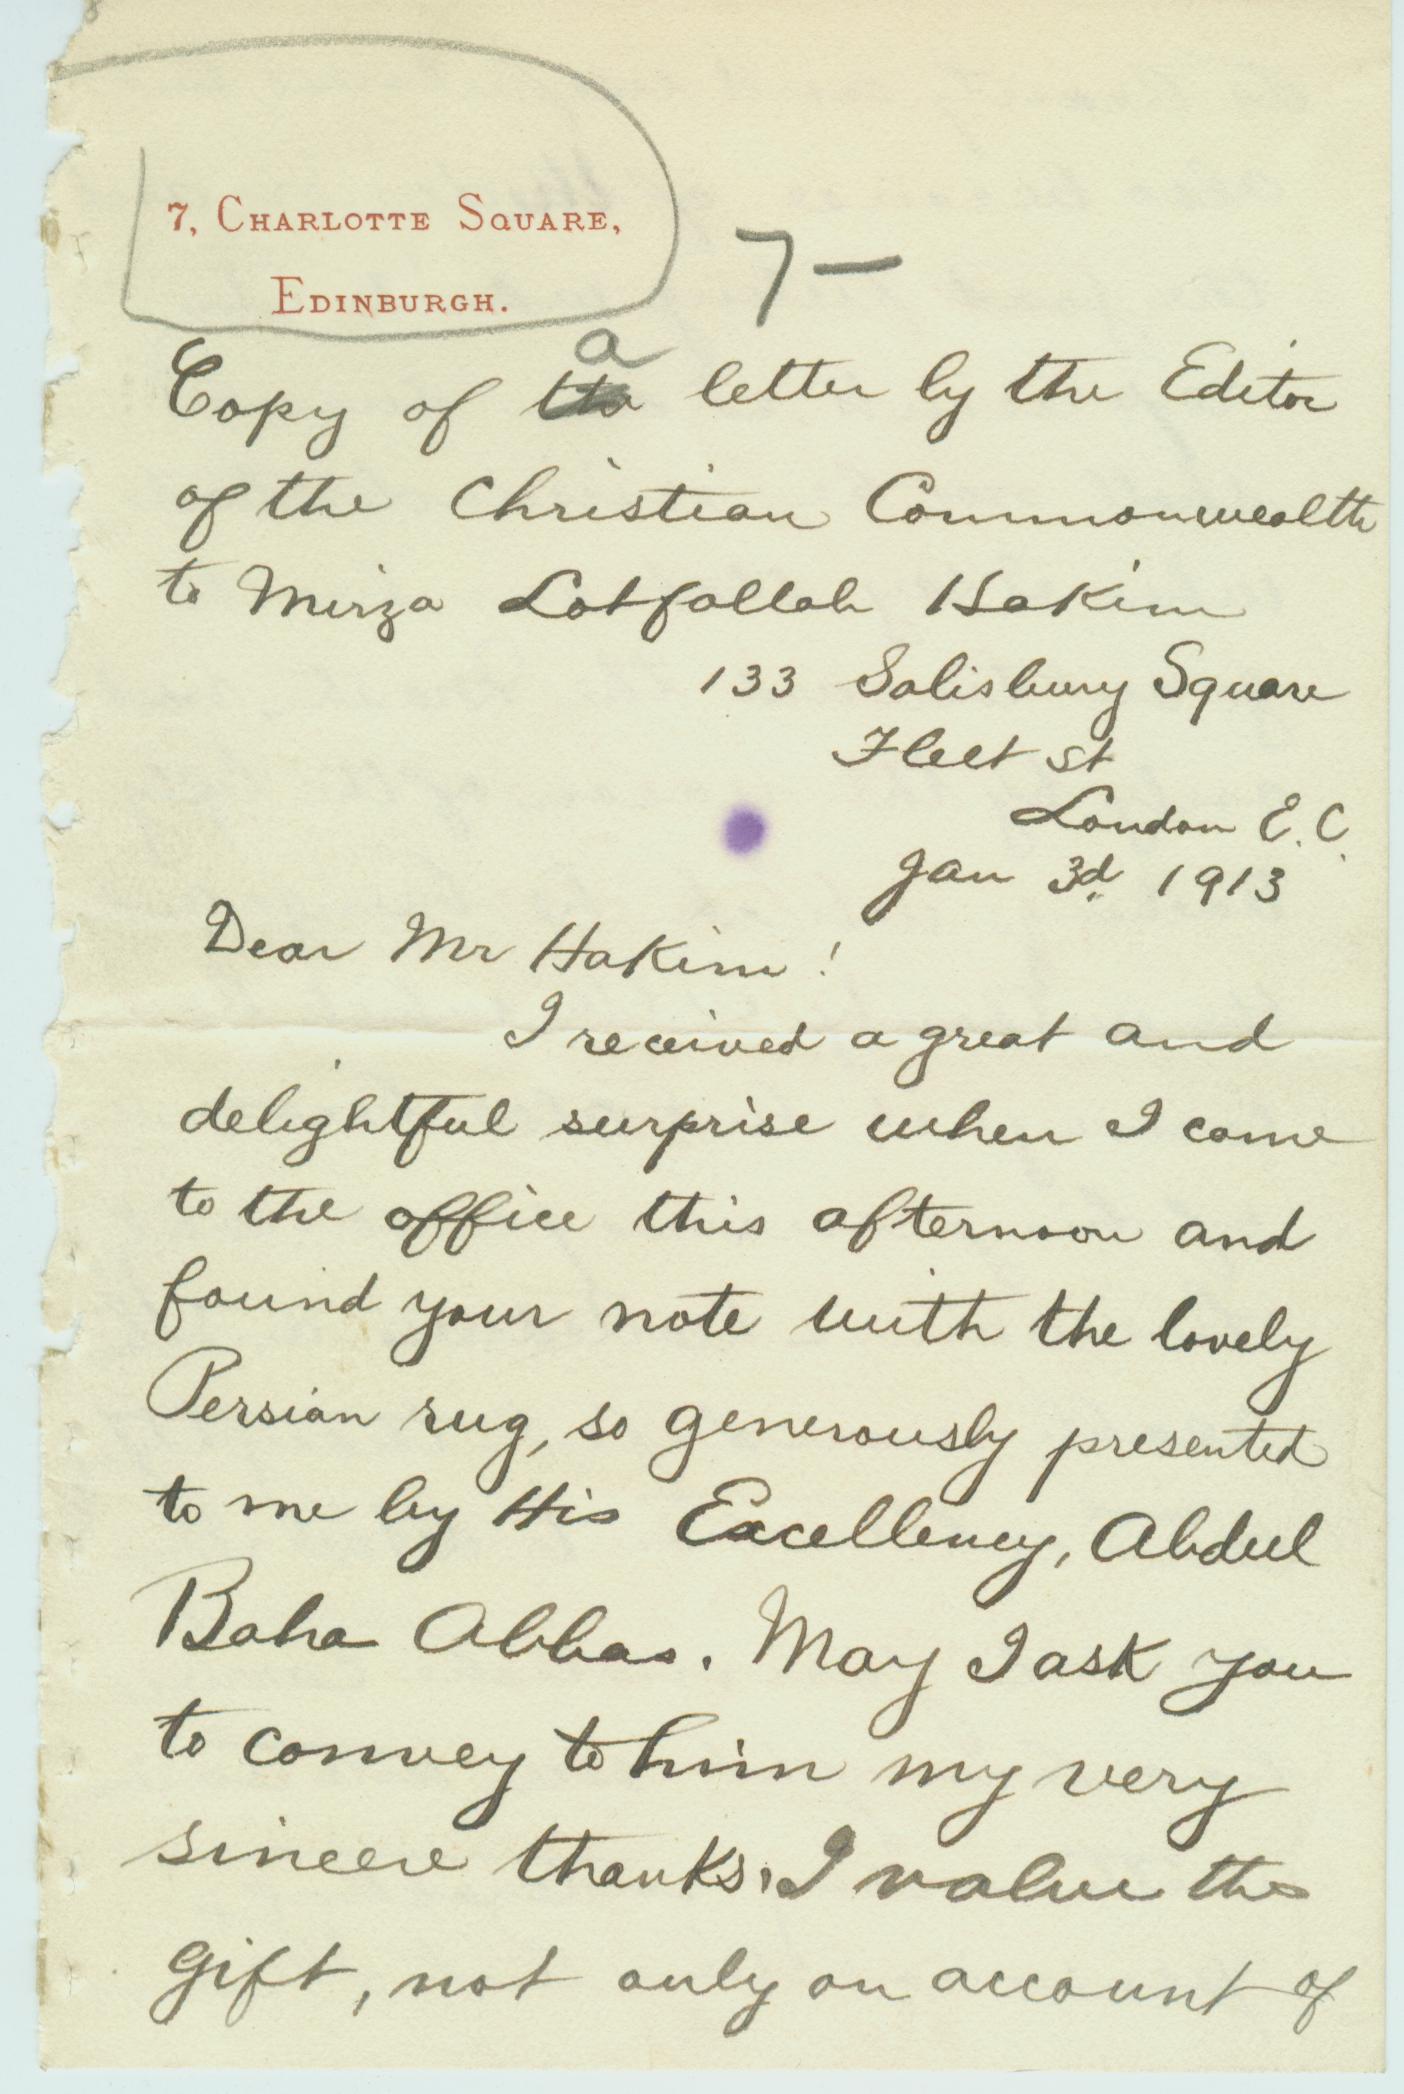 7, Charlotte Square,
Edinburgh.
7 —
a
Copy of letter by the Editor
of the Christian Commonwealth
to Mirza Lotfallah Hakim
133 Salisbury Square
Fleet St
London E.C.
Jan 3d. 1913
Dear Mr Hakim!
I received a great and
delightful surprise when I came
to the office this afternoon and
found your note with the lovely
Persian rug, so generously presented
to me by His Excellency, Abdul
Baha Abbas. May I ask you
to convey to him my very
sincere thanks. I value the
gift, not only on account of